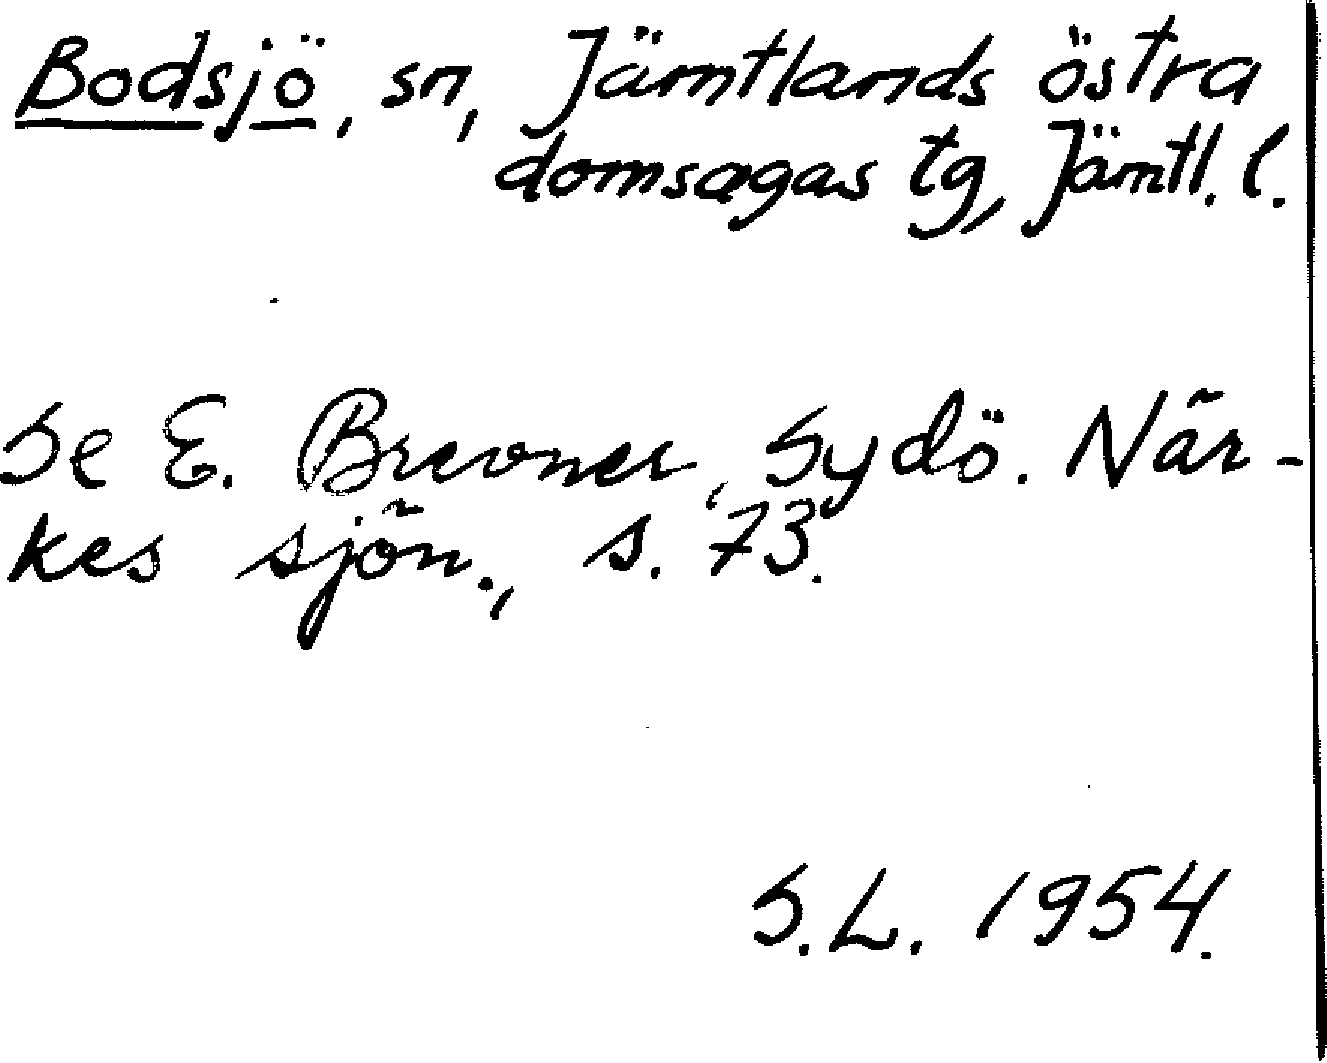 Bodsjö, sn, Jämtlands östra
domsagas tg, Jämtl. l.
Se E. Brevner, Sydö. När-
kes sjön., s. 73.
S.L. 1954.